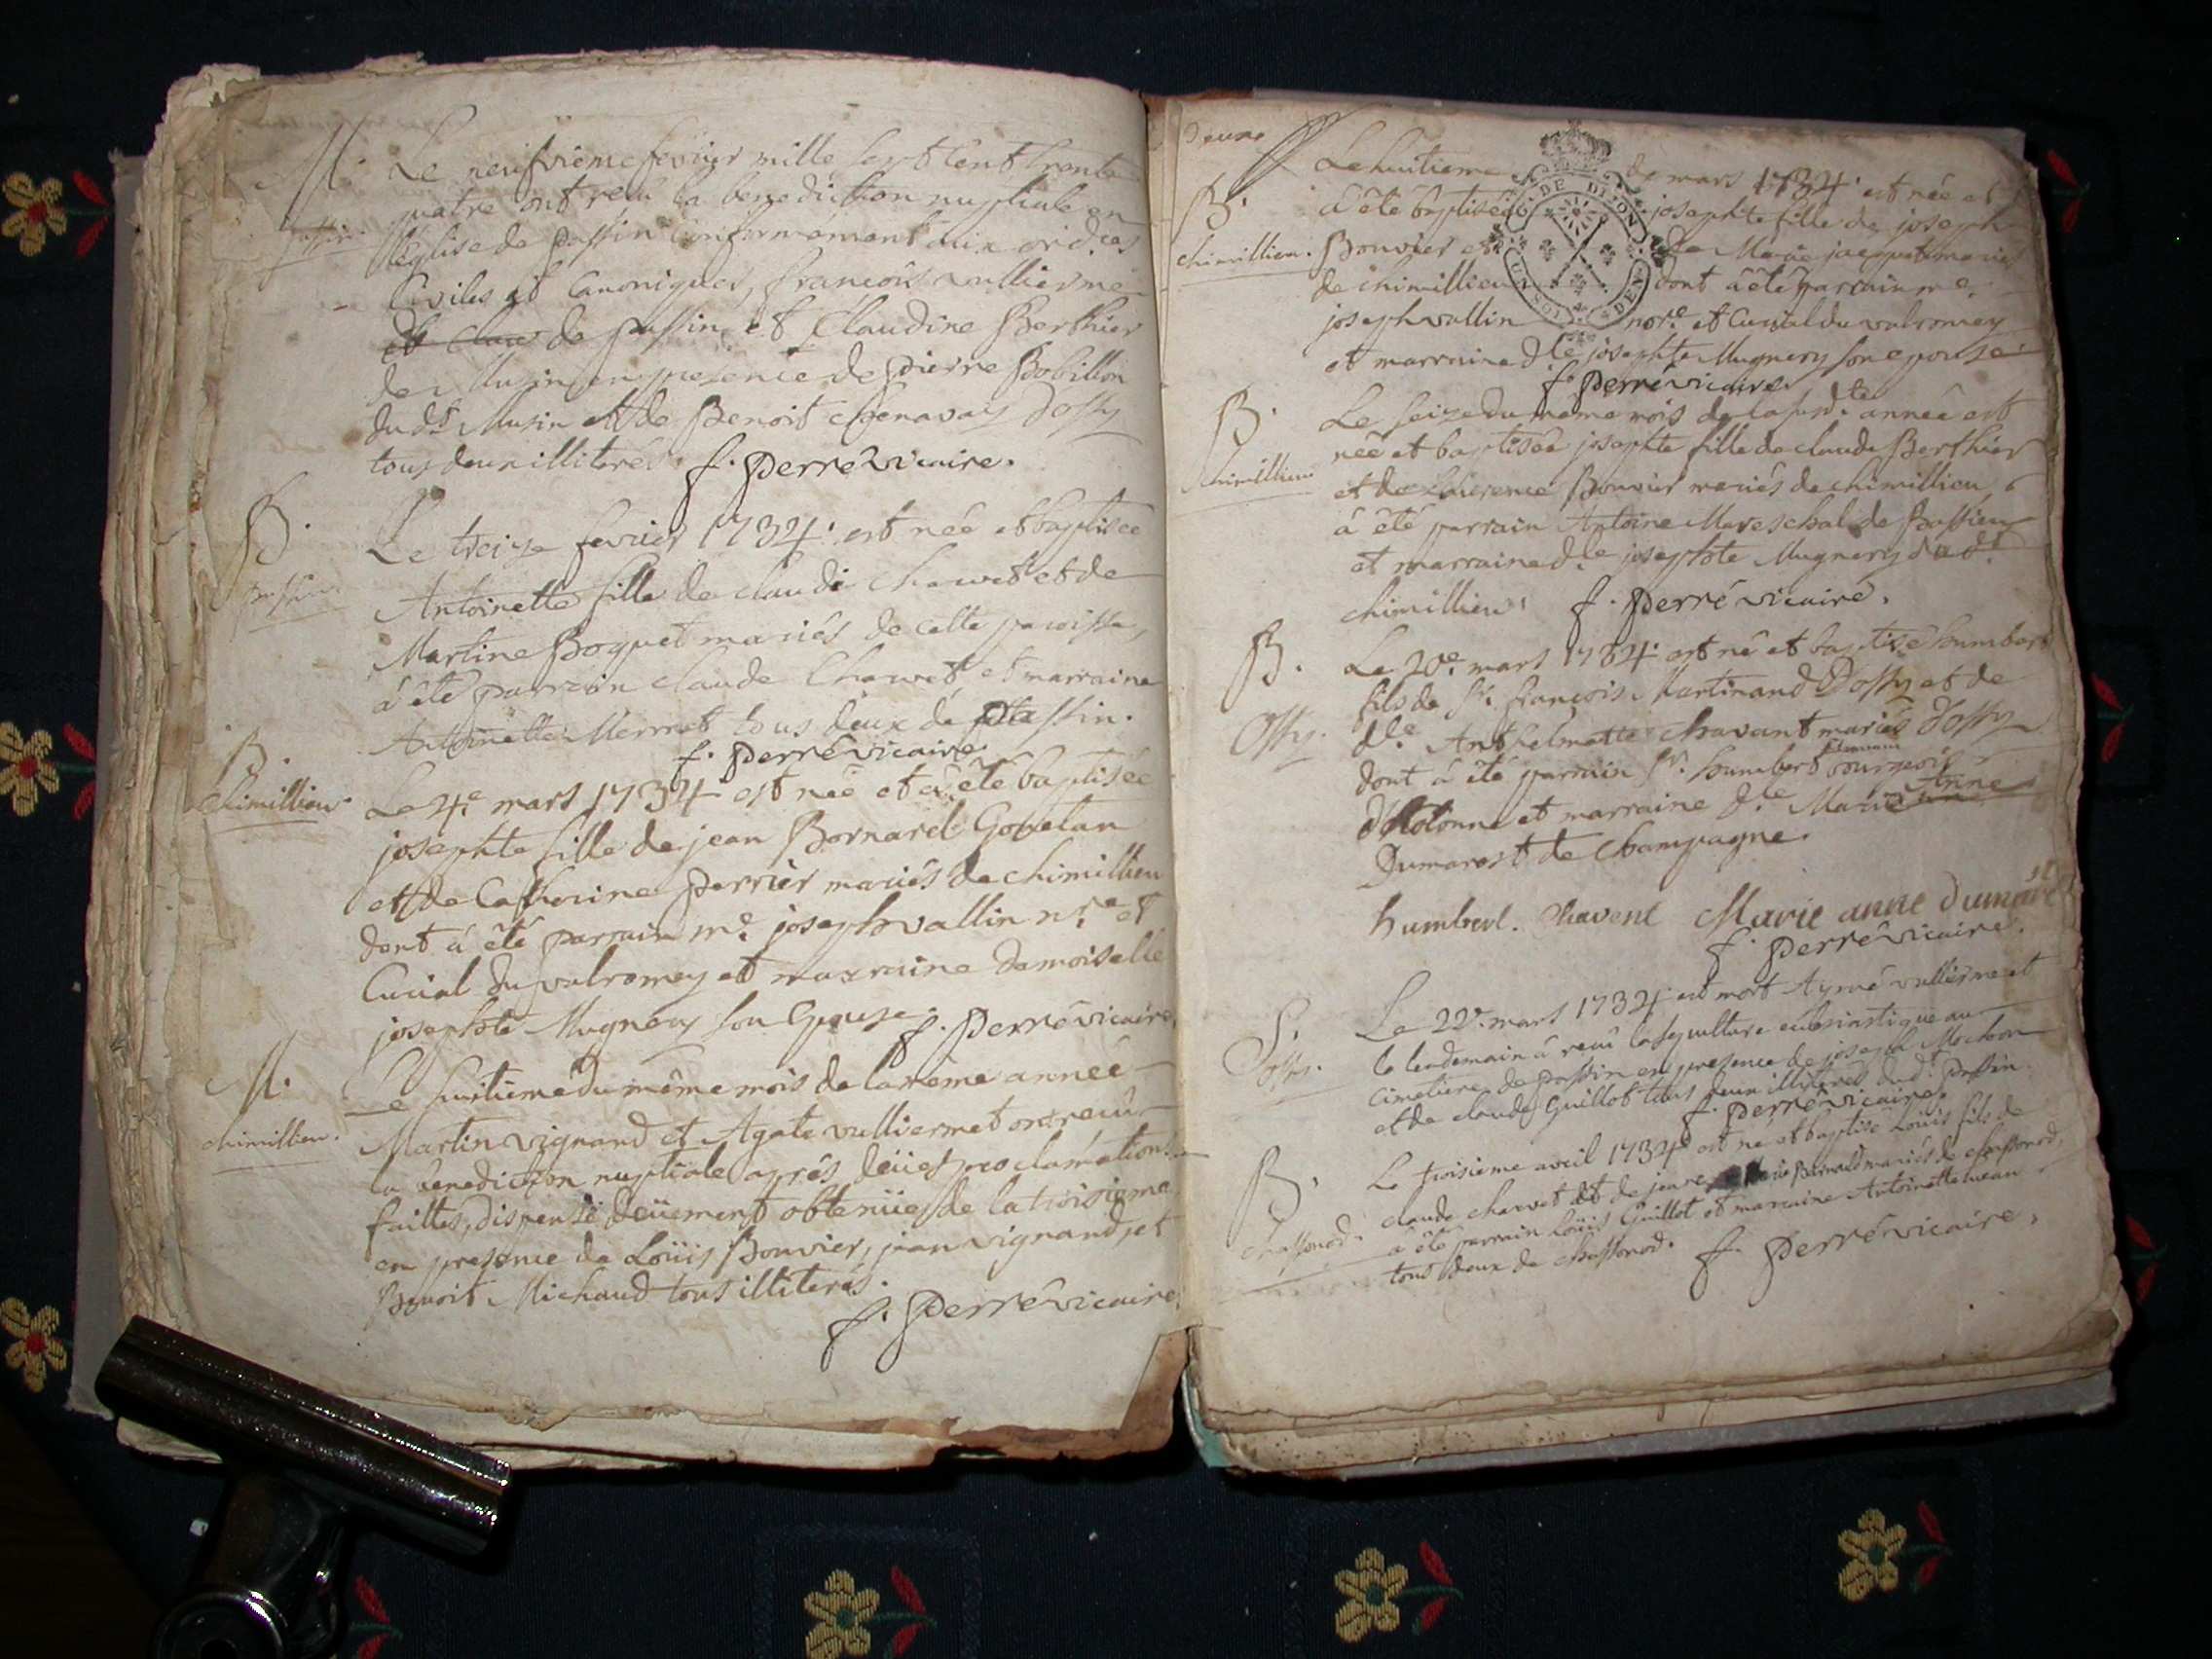 M. Le neufvieme fevrier mille sept cent trente
quatre ont reçu la benediction nuptiale en
passin. l'église de passin conformément aux ord.ces
civiles et canoniques, françois vulliermé
et clau de passin et Claudine Berthier
de Musin en presence de pierre Bobillon
dud.t Musin et de Benoit chenavay d'ossy
tous deux illiterés. f. perré vicaire.
B. Le treize fevrier 1734. est née et baptisée
passin. Antoinette fille de claude Charvet et de
Martine Boquet mariés de cette paroisse,
à été parrain claude Charvet et marraine
Antoinette Mermet tous deux de passin.
f. perré vicaire.
B.
Chimillieu. Le 4.e mars 1734 est née et à été baptisée
josephte fille de jean Bernard Gobelan
et de Catherine perrier mariés de chimillieu
dont à été parrain m.e joseph vallin n.re et
Curial du valromey et marraine demoiselle
josephte Mugnery son epouse. f. perré vicaire.
M. Le huitieme du même mois de la même année
chimillieu. Martin vignand et Agate vulliermet ont reçu
la benediction nuptiale après deües proclamations
faittes, dispense deüement obtenüe de la troisieme
en presence de Loüis Bouvier, jean vignand, et
Benoit Michaud tous illiterés.
f. perré vicaire.
deuxe
Le huitieme de mars 1734. est née et
B. à été baptisée josephte fille de joseph
chimillieu. Bouvier et de Marie jacquet mariés
de chimillieu dont à été parrain m.e
joseph vallin nor.e et Curial du valromey
et marraine d.le josephte Mugnery son epouse.
f. perré vicaire.
DE DIJON
B. Le seize du meme mois de la susd.te année est
née et baptisée josephte fille de claude Berthier
chimillieu et de Bouvier mariés de chimillieu
à été parrain Antoine Mareschal de Bassieu
et marraine d.le josephte Mugnery dud.t
chimillieu. f. perré vicaire.
B. Le 20.e mars 1734. est né et baptisé humbert
fils de S.r françois Martinand d'ossy et de
Ossy. d.le Anthelmette Chavant mariés d'ossy
dont à été parrain S.r humbert bourgeois
d'hotonne et marraine d.le Marie Anne
Dumarest de Champagne.
humbert. Chavent Marie anne dumaret
f. perré vicaire.
S. Le 22.e mars 1734. est mort Aymé vulliermet
ossy. le lendemain à reçu la sepulture eclesiastique au
cimetiere de passin en presence de joseph Mochon
et de claude Guillot tous deux illiterés dud.t passin
f. perré vicaire.
B. Le troisieme avril 1734 est né et baptisé Loüis fils de
claude charvet et de Bernard mariés de chassonod,
chassonod. à été parrain Loüis Guillot et marraine Antoinette
tous deux de chassonod. f. perré vicaire.